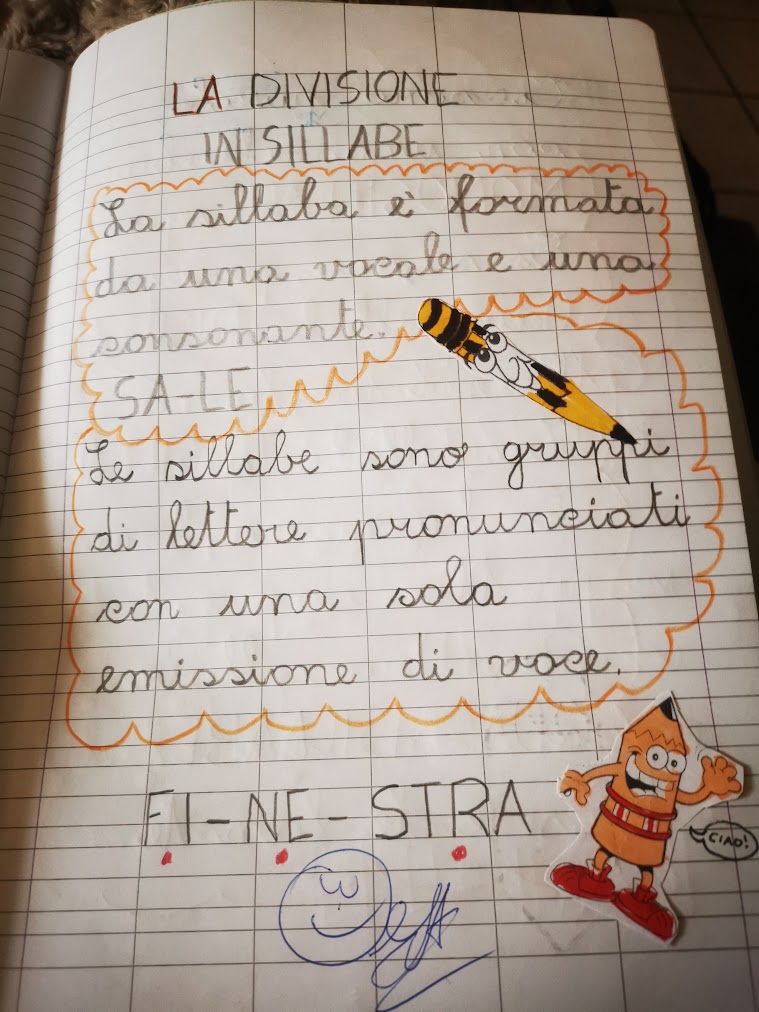 LA DIVISIONE
IN SILLABE
La sillaba è formata
da una vocale e una
consonante.
SA-LE
Le sillabe sono gruppi
di lettere pronunciati
con una sola
emissione di voce.
FI-NE-STRA
CIAO!